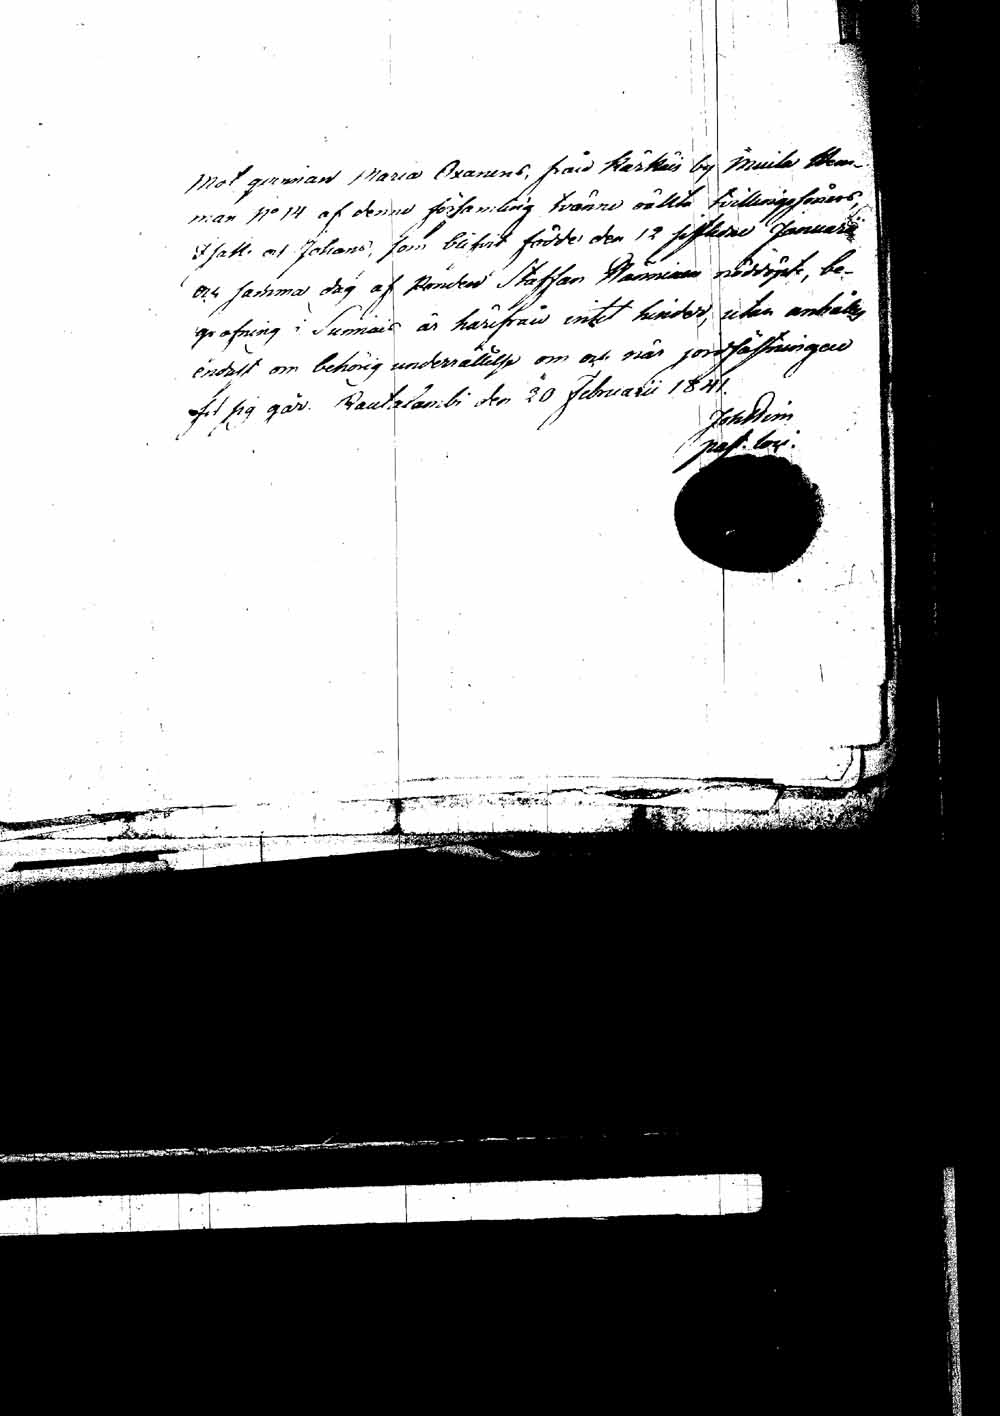 Mot qvinnan Maria Oxanens, från Kärkäis by Muila Hem-
man No 14 af denne församling tvänne oäkta tvillingssöners,
Isak och Johans, som blifvit födde den 12 sistledne Januarii
och samma dag af Bonden Staffan Manninen nöddöpte, be-
grafning i Sumiais är härifrån intet hinder, utan anhålles
endast om behörig underrättelse om och när jordfästningen
för sig går. Rautalambi den 20 Februarii 1841.
past. loci.